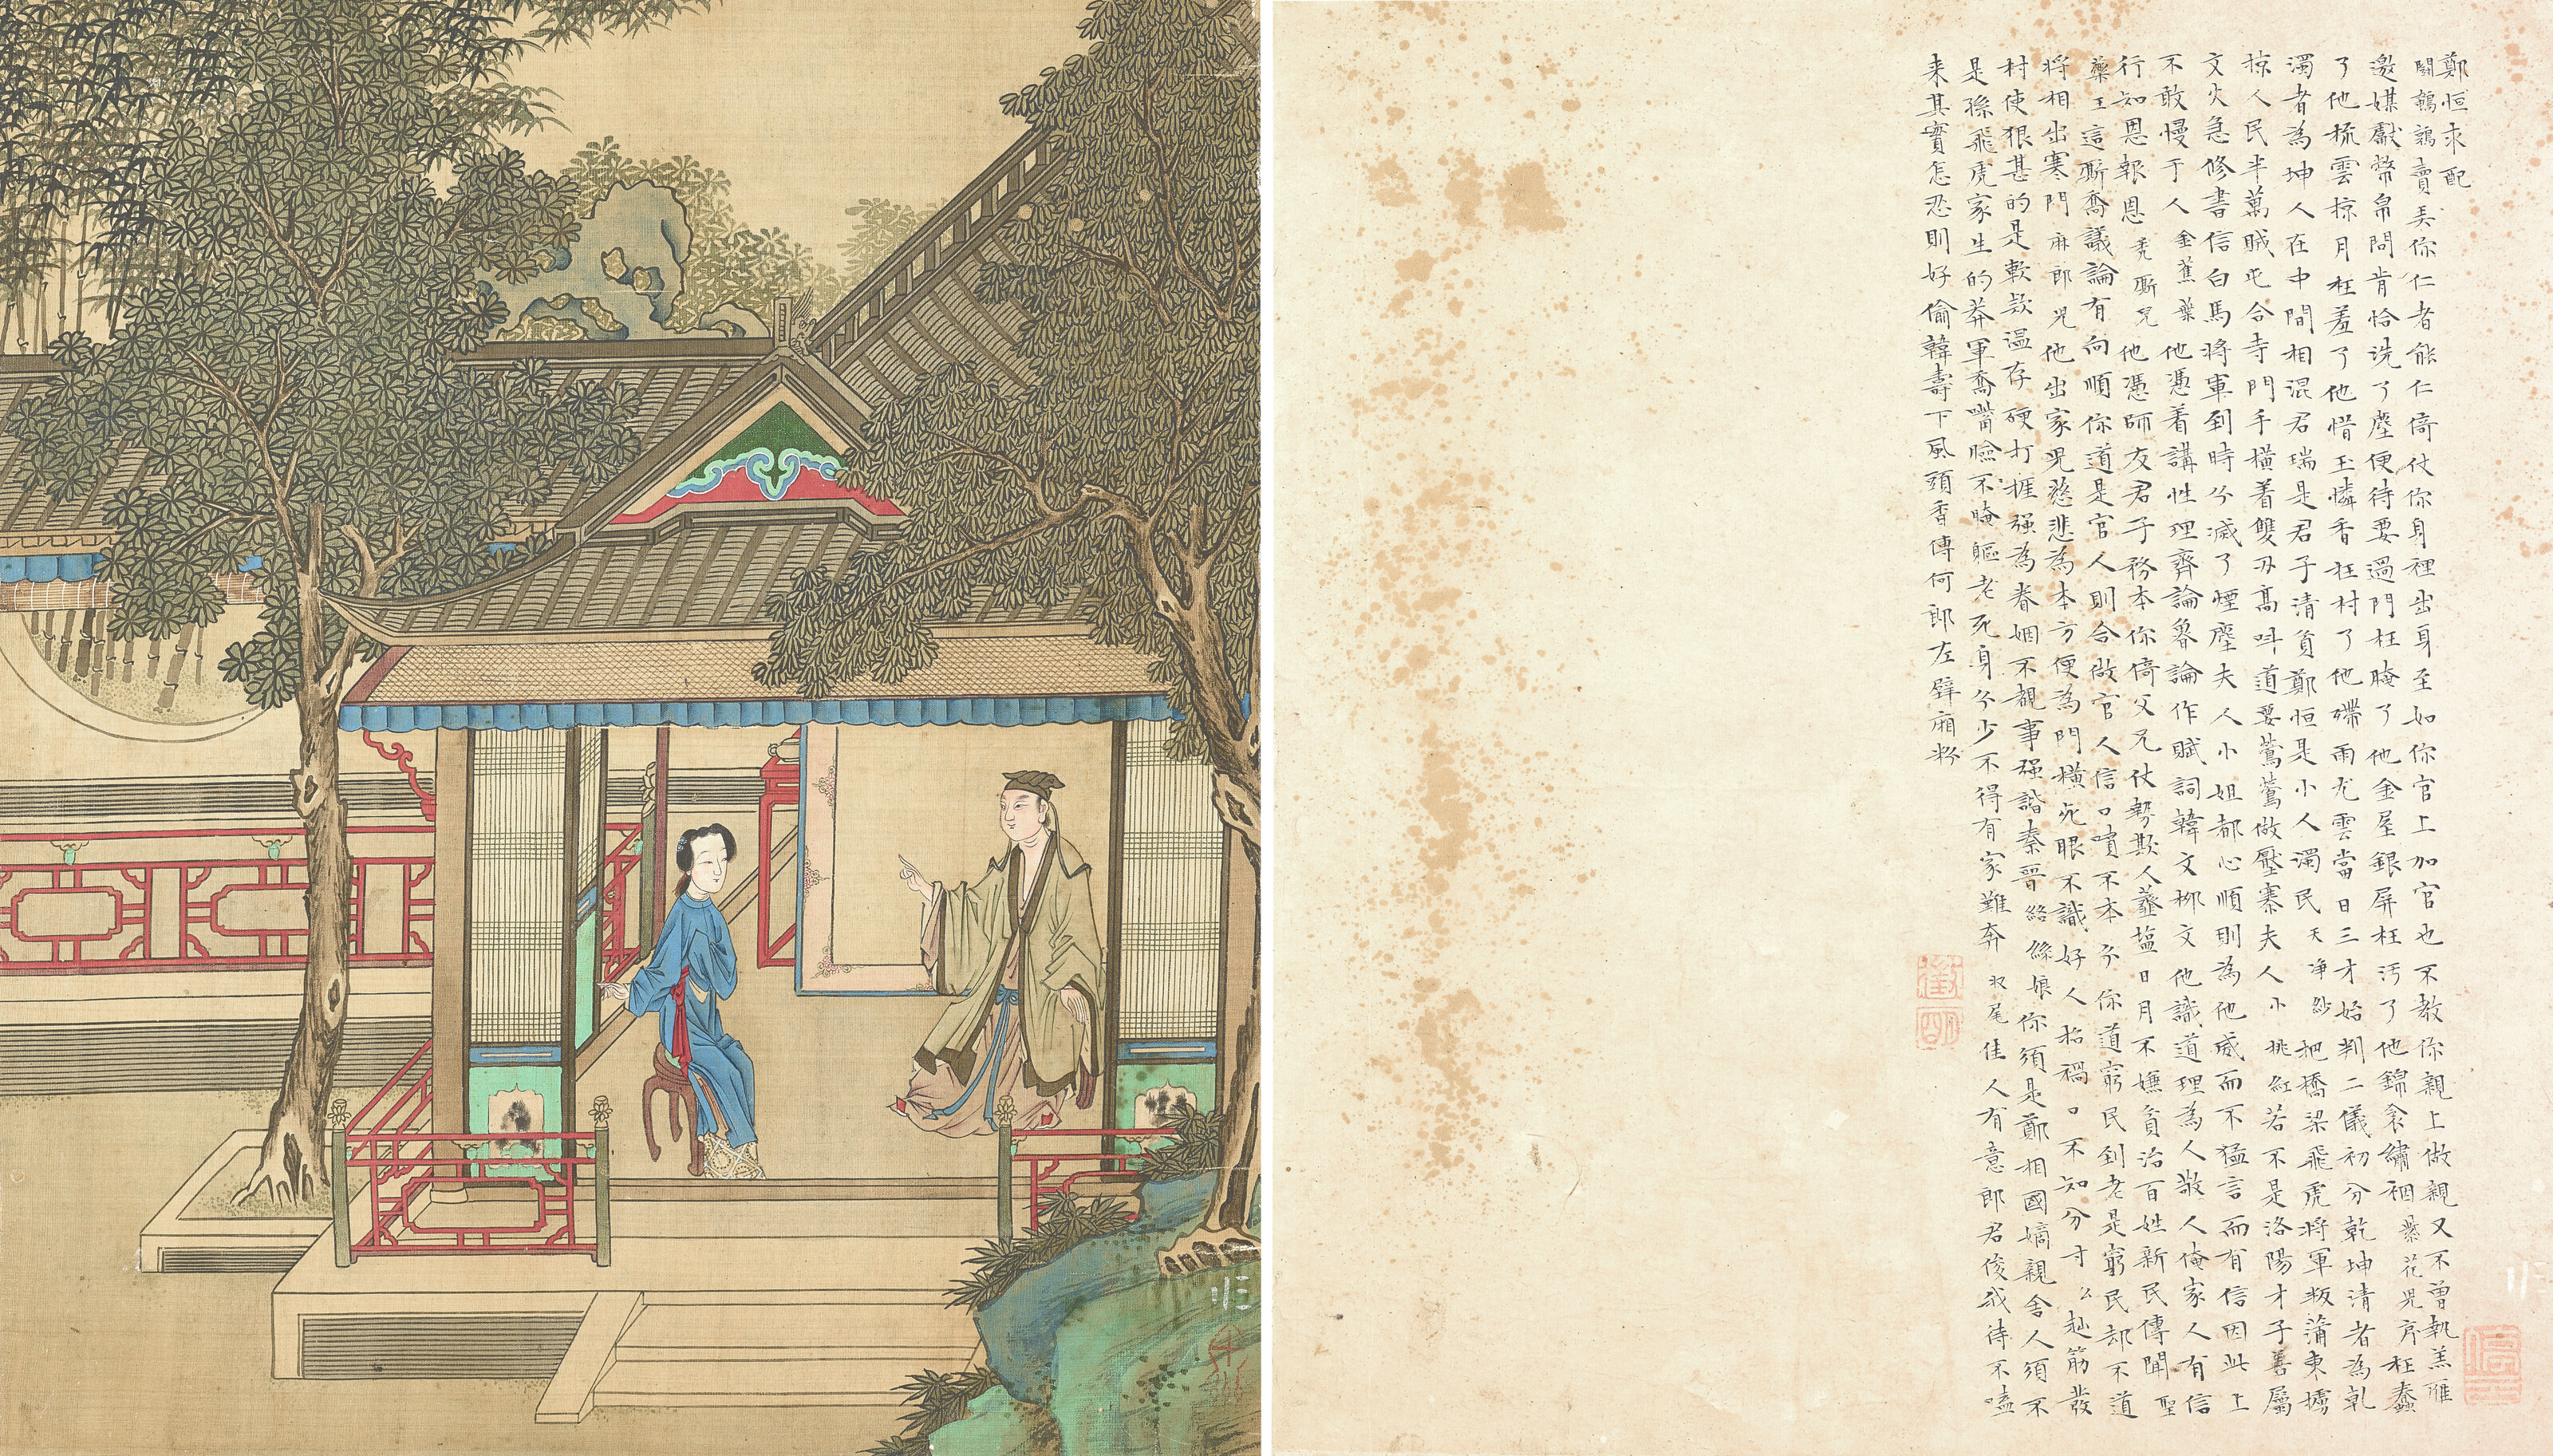 鄭恒求配
鬪鵪鶉賣弄你仁者能仁倚仗你身裡出身至如你官上加官也不教你親上做親又不曽執羔雁
邀媒獻幣帛問肯恰洗了塵便待要過門枉腌了他金屋銀屏枉汚了他錦衾繡裀 紫花兒序枉蠢
了他梳雲掠月枉羞了他惜玉憐香枉村了他殢雨尤雲當日三才始判二儀初分乾坤清者為乾
濁者為坤人在中間相混君瑞是君子清貧鄭恒是小人濁民 天淨紗把橋梁飛虎將軍叛蒲東擄
掠人民半萬賊屯合寺門手橫着雙刃高呌道要鶯鶯做壓寨夫人 小桃紅若不是洛陽才子善屬
文火急修書信白馬將軍到時分滅了煙塵夫人小姐都心順則為他威而不猛言而有信因此上
不敢慢于人 金蕉葉他憑着講性理齊論魯論作賦詞韓文柳文他識道理為人敬人俺家人有信
行知恩報恩 禿厮兒他憑師友君子務本你倚父兄仗勢欺人虀塩日月不嫌貧治百姓新民傳聞 聖
藥王這厮喬議論有向順你道是官人則合做官人信口噴不本分你道窮民到老是窮民却不道
將相出寒門 麻郎兒他出家兒慈悲為本方便為門橫死眼不識好人招禍口不知分寸 么赸筋發
村使狠甚的是軟款溫存硬打捱强為眷姻不覩事强諧秦晉 絡絲娘你須是鄭相國嫡親舍人須不
是孫飛虎家生的莽軍喬嘴臉不腌軀老死身分少不得有家難奔 収尾佳人有意郎君俊我待不嗑
来其實怎忍則好偷韓壽下風頭香傳何郎左壁廂粉
徵明